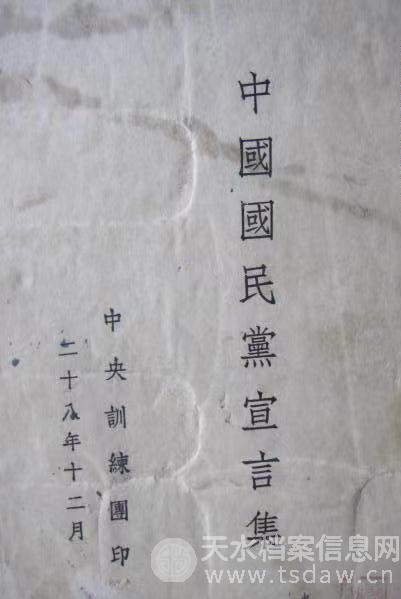 中國國民黨宣言集
中央訓練團印
二十八年十二月
天水档案信息网
www.tsdaw.cn